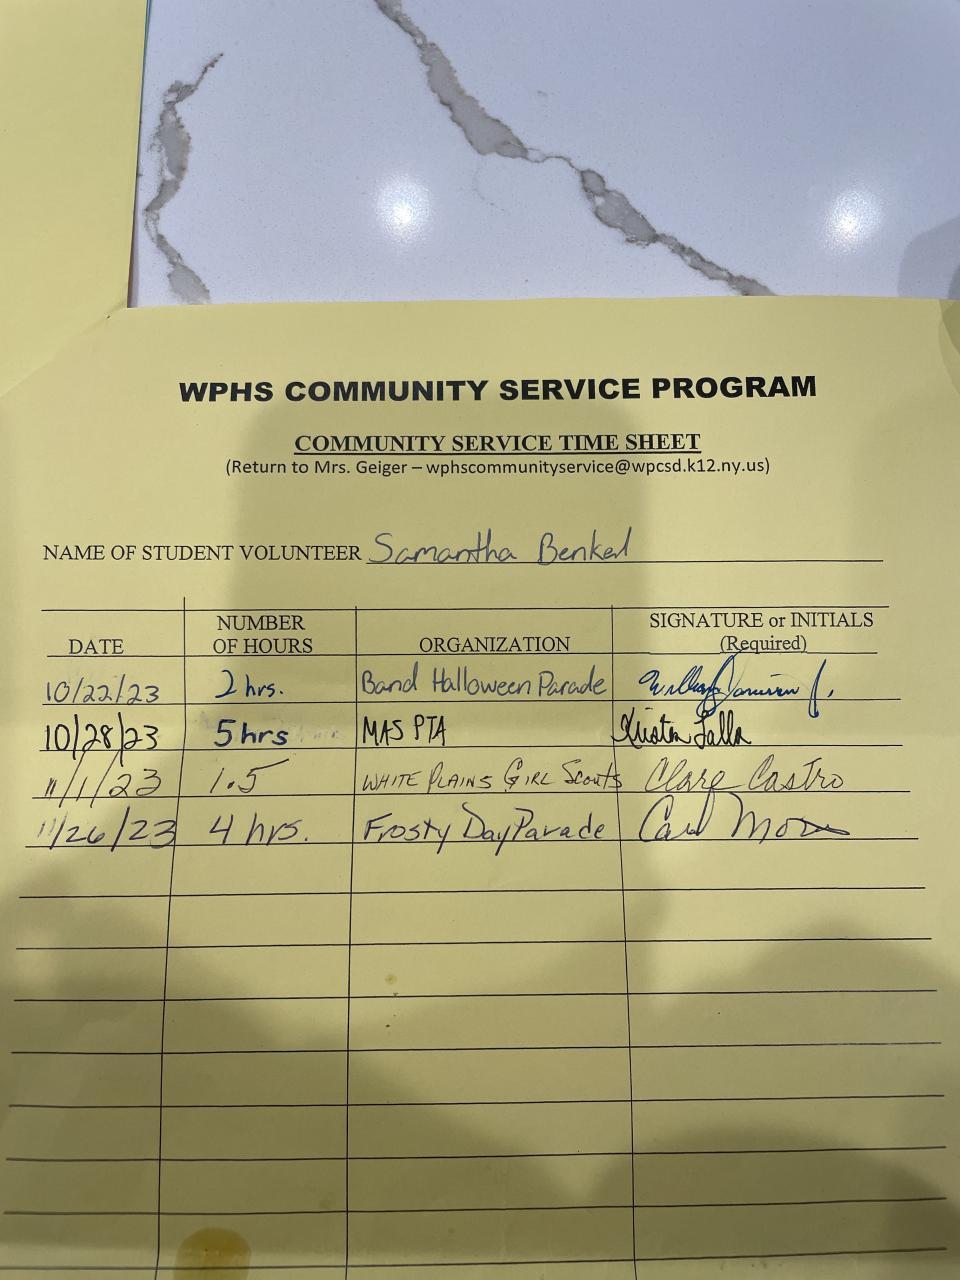 WPHS COMMUNITY SERVICE PROGRAM
COMMUNITY SERVICE TIME SHEET
(Return to Mrs. Geiger – wphscommunityservice@wpcsd.k12.ny.us)
NAME OF STUDENT VOLUNTEER Samantha Benkel
DATE NUMBER OF HOURS ORGANIZATION SIGNATURE or INITIALS (Required)
10/22/23 2 hrs. Band Halloween Parade
10/28/23 5 hrs MAS PTA Kristen
11/1/23 1.5 WHITE PLAINS GIRL Scouts Clare Castro
11/26/23 4 hrs. Frosty Day Parade